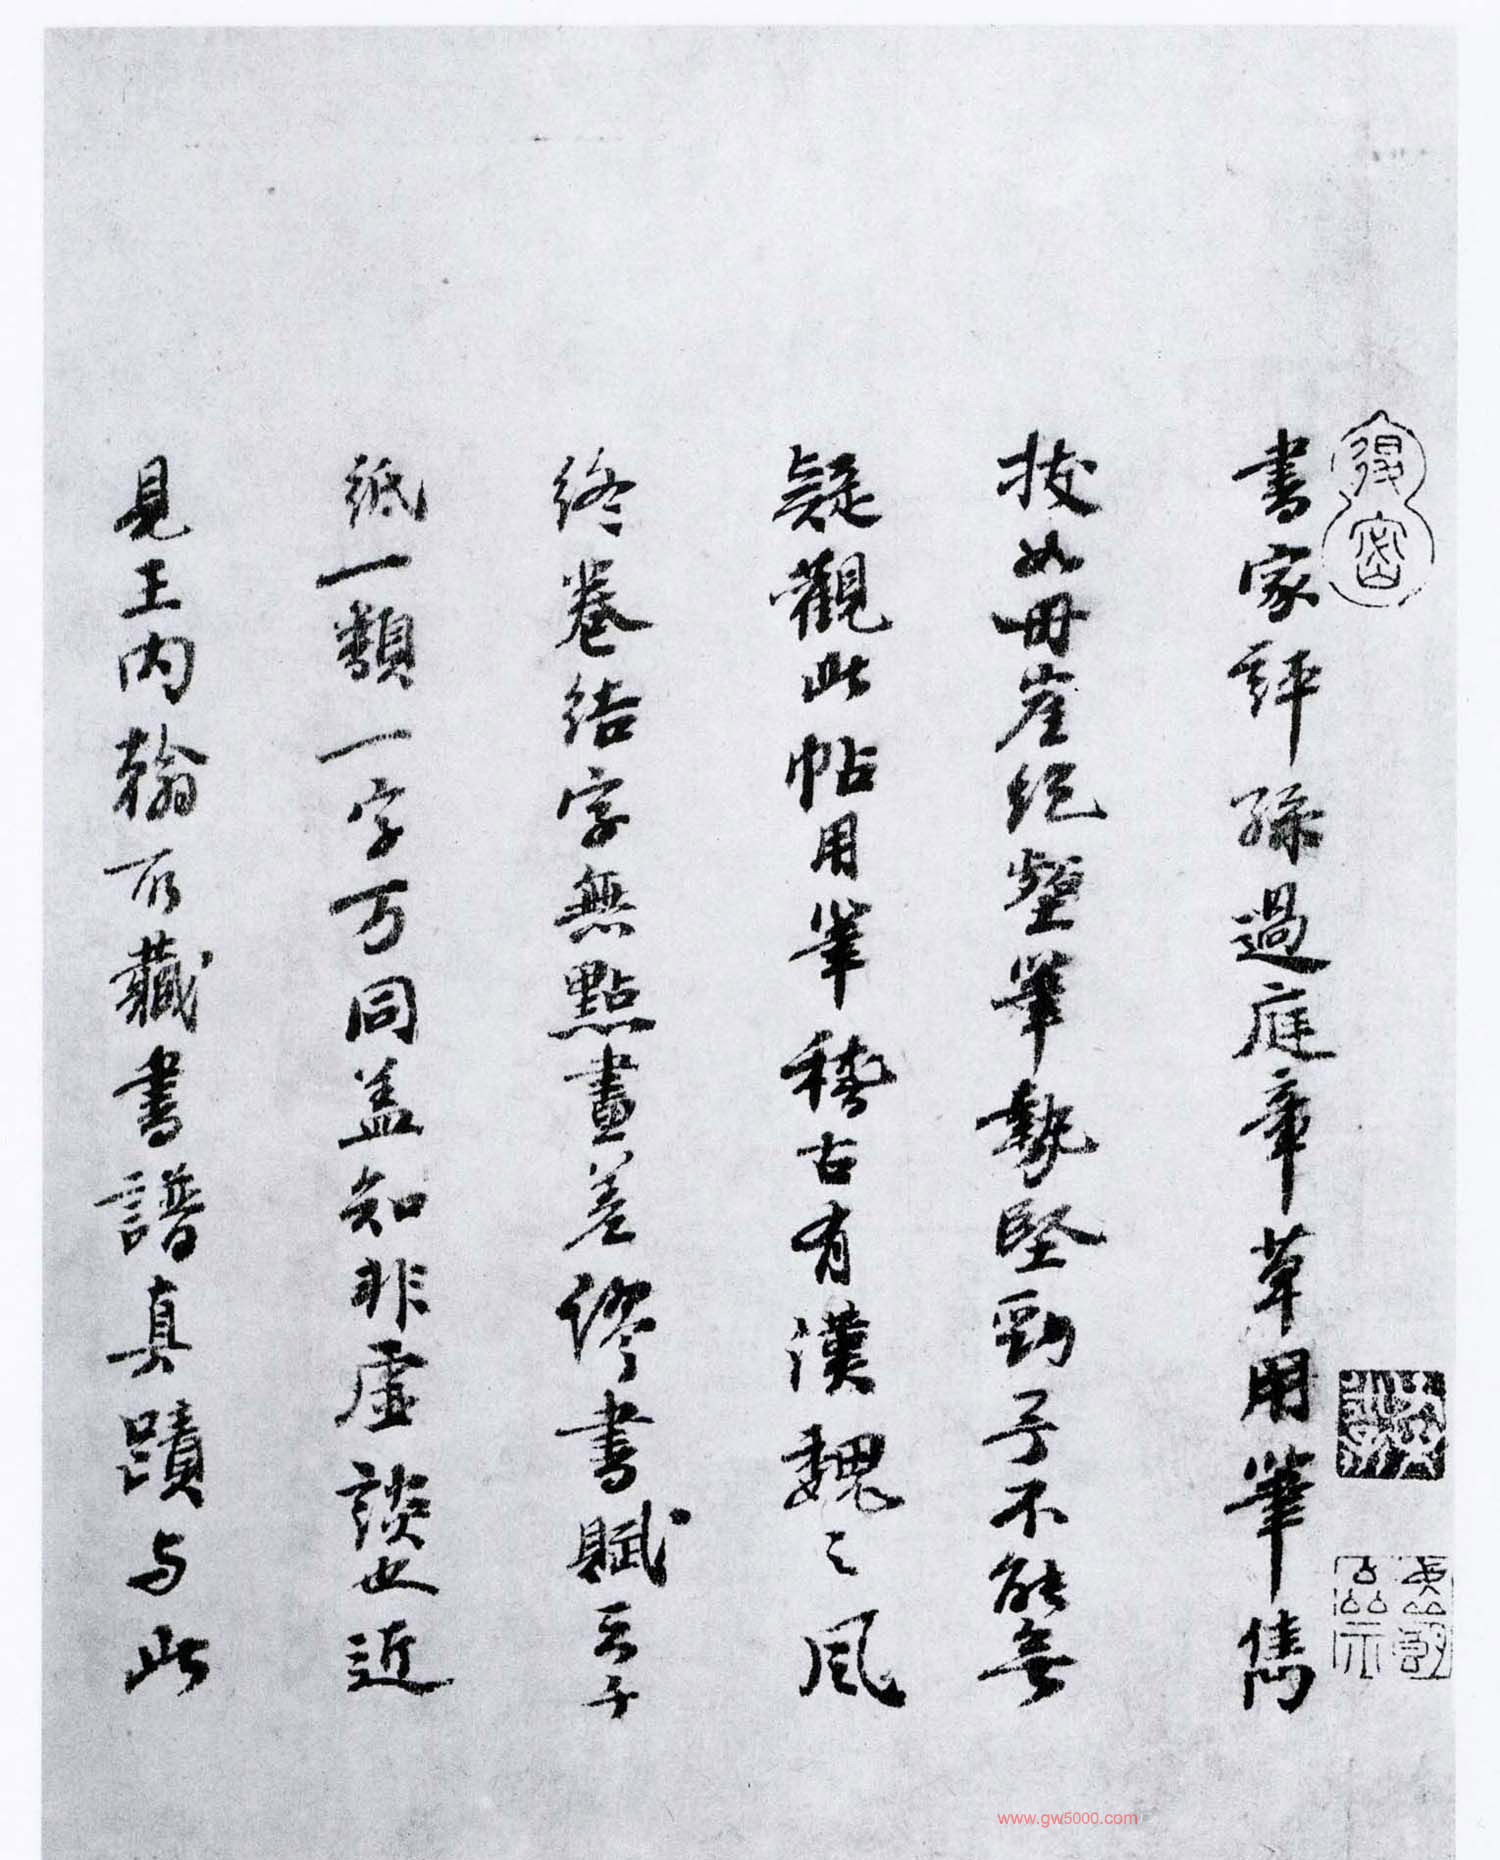 書家評孫過庭章草用筆雋
拔如毌崖絕壑筆勢堅勁予不能無
疑觀此帖用筆稽古有漢魏之風
終卷結字無點畫差繆書賦云千
紙一類一字万同盖知非虛談也近
見王内翰所藏書譜真蹟与此
www.gw5000.com